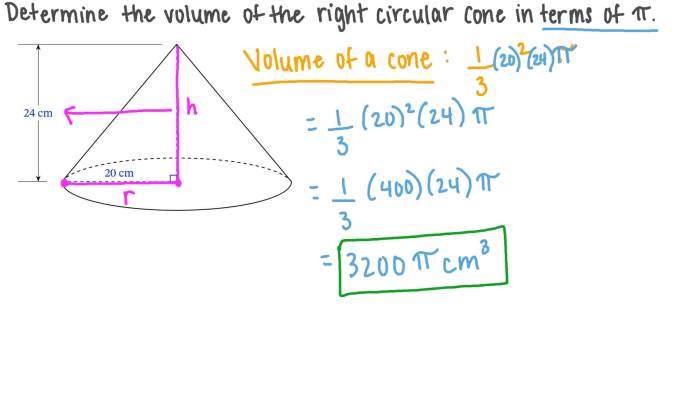 Determine the volume of the right circular cone in terms of π.
Volume of a cone : 1/3 (20)²(24)π
24 cm
h
= 1/3 (20)²(24) π
20 cm
r
= 1/3 (400)(24) π
= 3200 π cm³